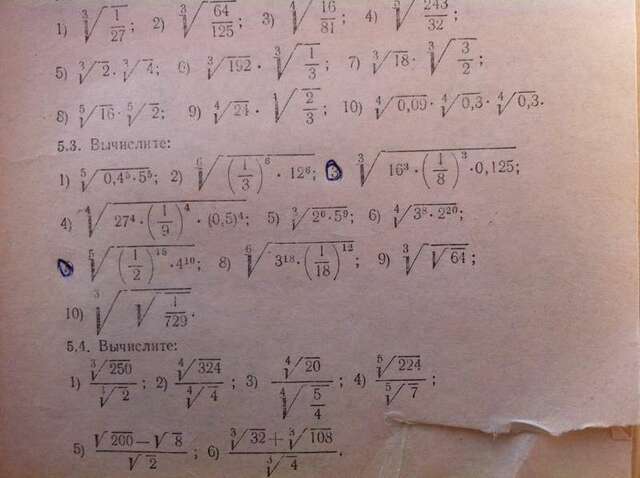 1) ∛(1/27); 2) ∛(64/125); 3) ∜(16/81); 4) ⁵√(243/32);
5) ∛2 · ∛4; 6) ∛192 · ∛(1/3); 7) ∛18 · ∛(3/2);
8) ⁵√16 · ⁵√2; 9) ∜24 · √(2/3); 10) ∜0,09 · ∜0,3 · ∜0,3.
5.3. Вычислите:
1) ⁵√(0,4⁵·5⁵); 2) ⁶√((1/3)⁶ · 12⁶; ∛(16³·(1/8)³·0,125;
4) ∜(27⁴·(1/9)⁴ · (0,5)⁴; 5) ∛(2⁶·5⁹); 6) ∜(3⁸·2²⁰);
⁵√((1/2)¹⁵·4¹⁰; 8) ⁶√(3¹⁸·(1/18)¹²; 9) ∛√64;
10) ∛√(1/729).
5.4. Вычислите:
1) ∛250/∛2; 2) ∜324/∜4; 3) ∜20/∜(5/4); 4) ⁵√224/⁵√7;
5) (√200−√8)/√2; 6) (∛32+∛108)/∛4.